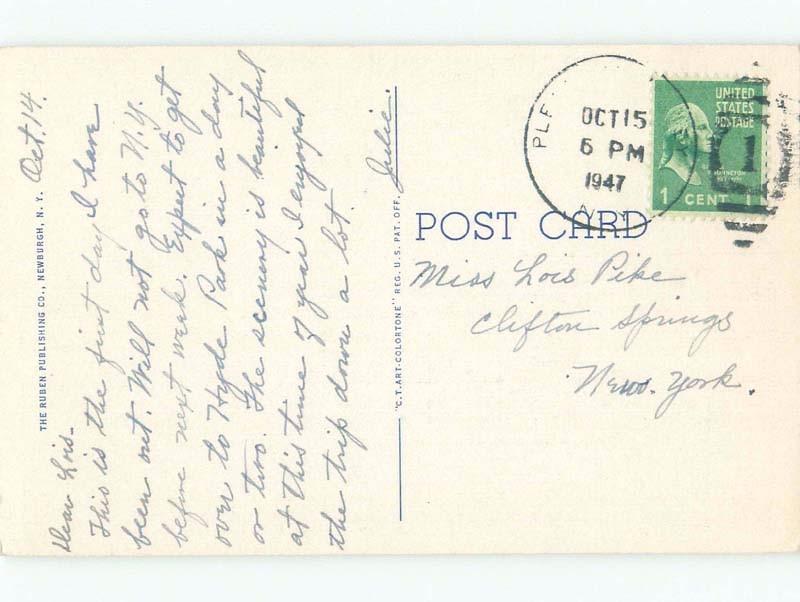 Oct. 14.
Dear Lois-
This is the first day I have
been out. Will not go to N.Y.
before next week. Expect to get
over to Hyde Park in a day
or two. The scenery is beautiful
at this time of year I enjoyed
the trip down a lot.
Julie.
THE RUBEN PUBLISHING CO., NEWBURGH, N. Y.
"C.T.ART-COLORTONE" REG. U.S. PAT. OFF.
PLE
OCT 15
6 PM
1947
N.Y.
UNITED
STATES
POSTAGE
1 CENT 1
POST CARD
Miss Lois Pike
Clifton Springs
New York.